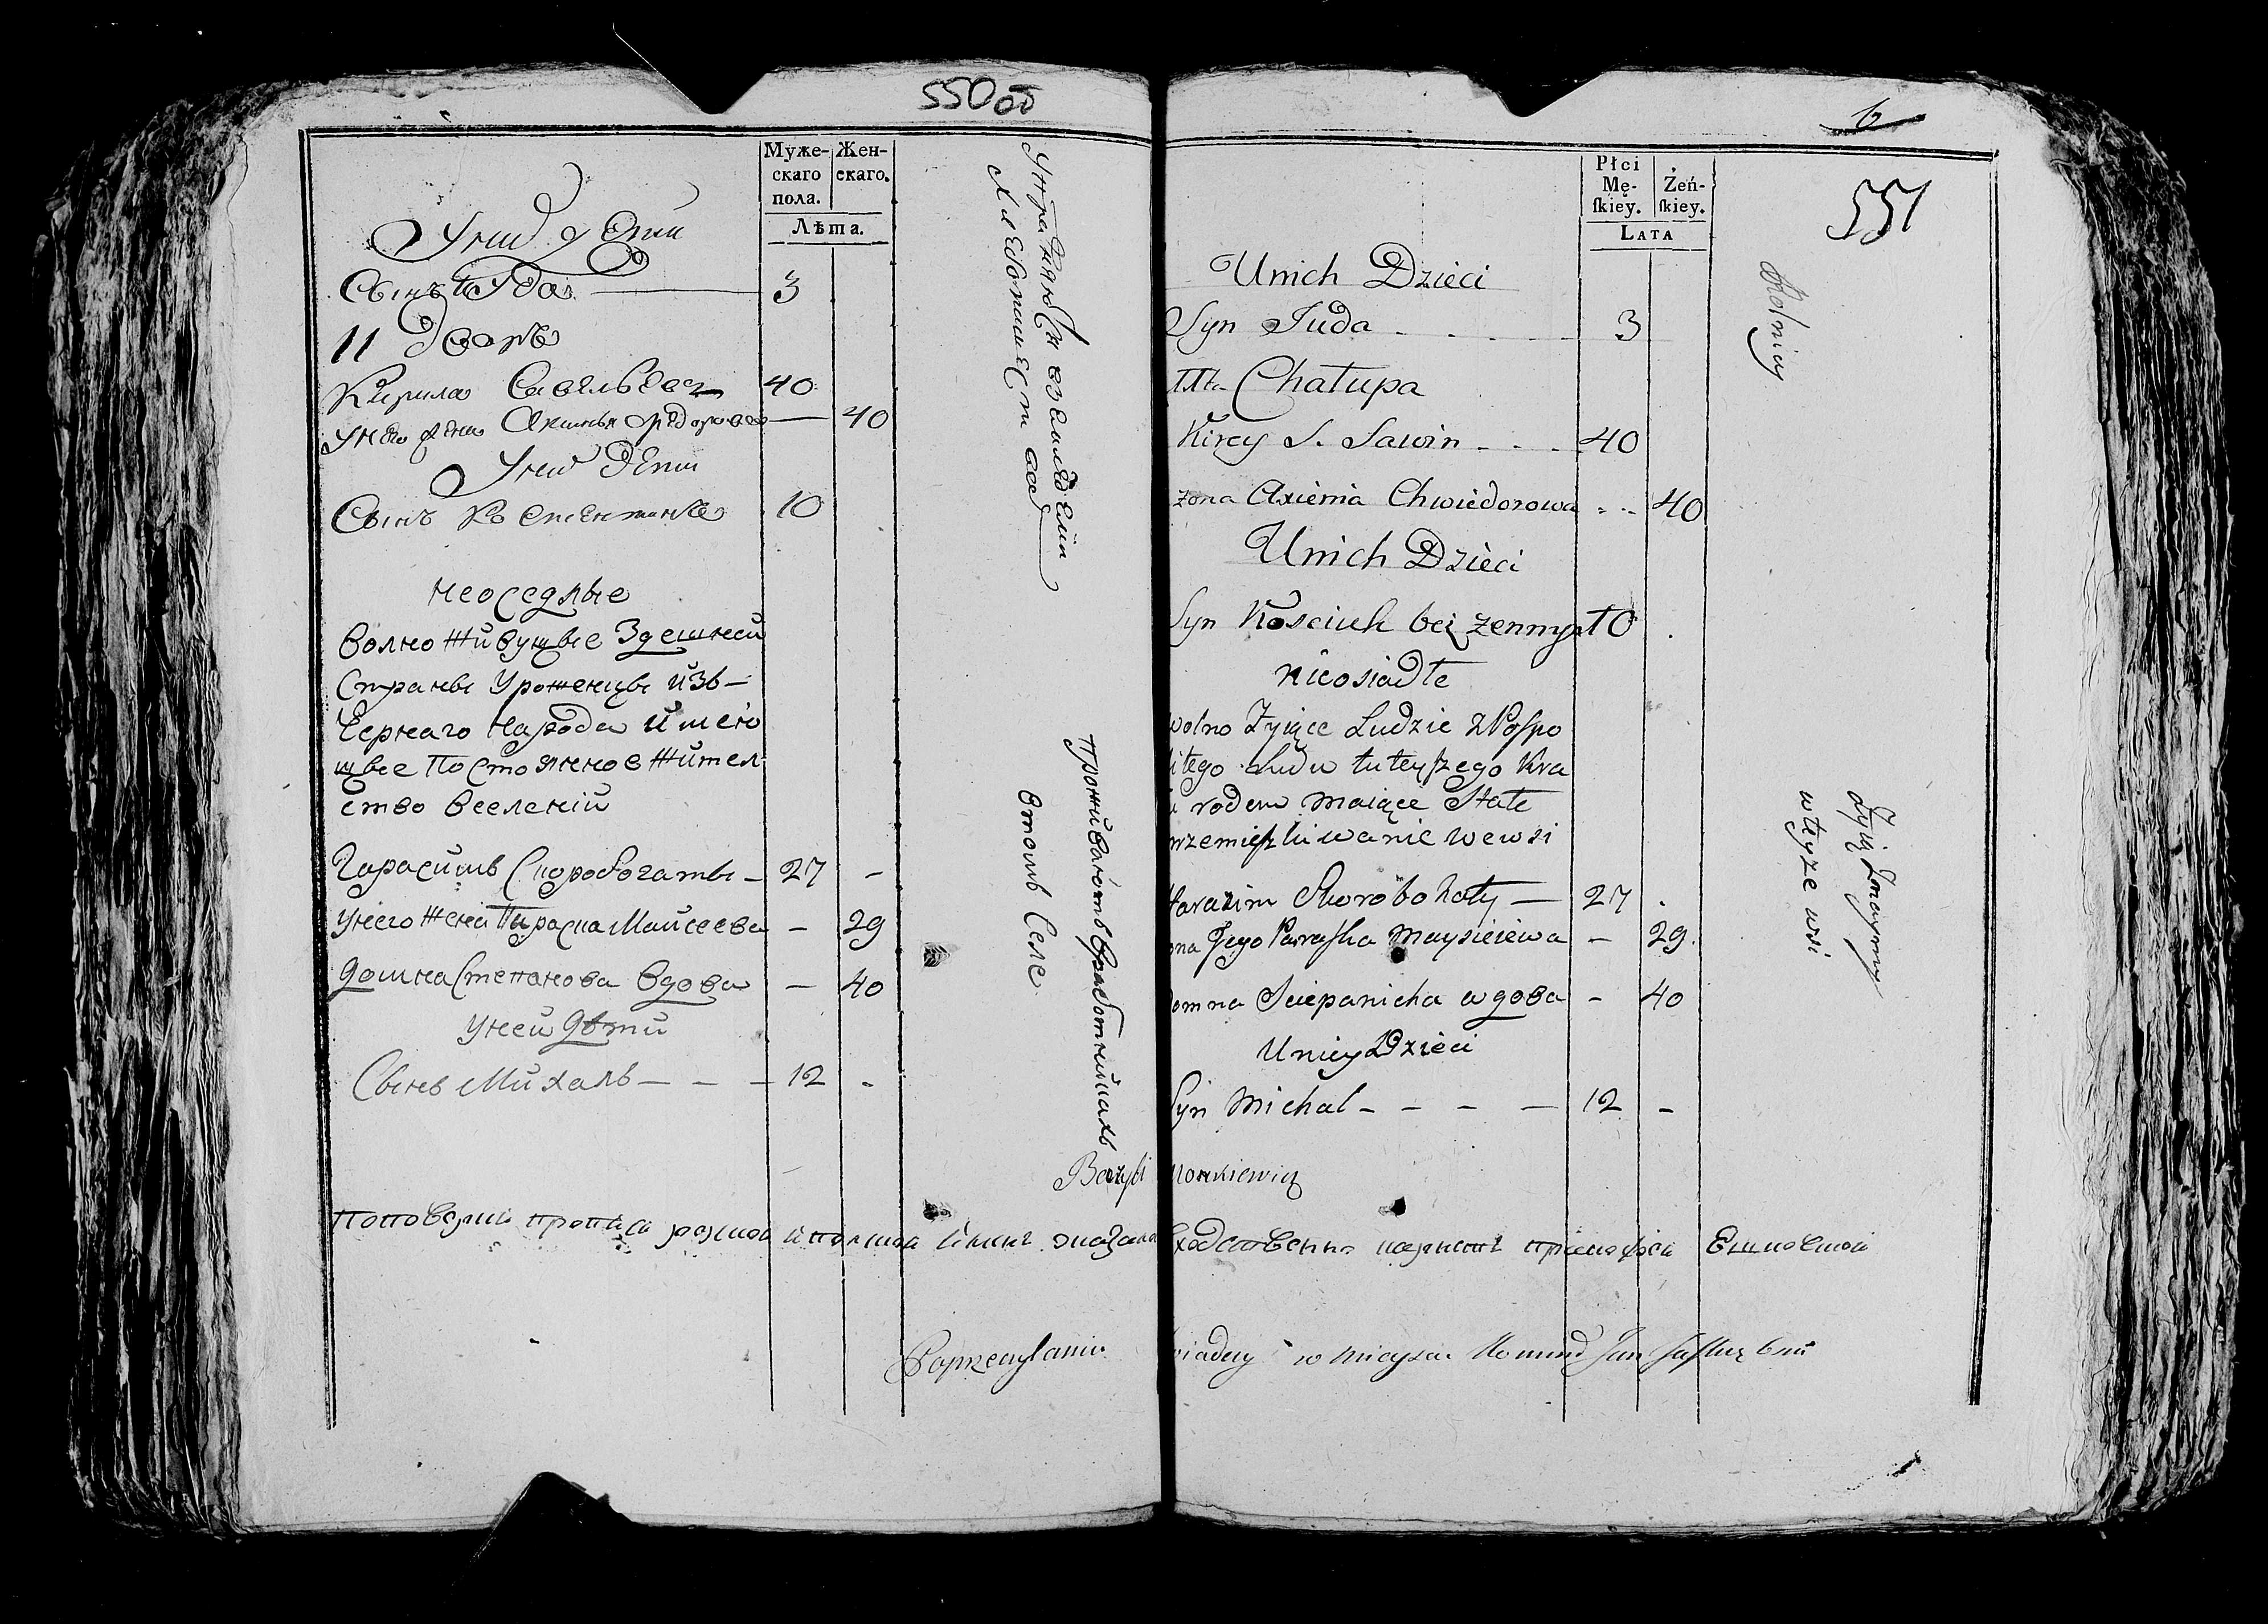 550 об
Муже-
скаго
пола.
Жен-
скаго.
Лѣта.
У них дети
Сынъ Юда 3
11 Дворъ
Кирила Савельевъ 40
У него жена Аксинья Федорова — 40
У них дети
Сынъ Костентинъ 10
неоседлые
волно живущые Здешней
Страны Уроженцы изъ —
Чернаго Народа имею
щые Постоянное жител
ство вселений
Гарасимъ Скоробогаты — 27 -
у него жена Параска Майсеева — 29
Домна Степанова вдова — 40
у ней дѣти
Сынъ Михалъ — — — 12 -
Упражняются в земледелии
Хлебопашеств
Проживаютъ в работникахъ
в томъ Селе.
6
551
Płci
Mę-
ſkiey.
Żeń-
ſkiey.
LATA
Unich Dzieci
Syn Juda 3
Chałupa
Kirey S. Sawin 40
żona Axienia Chwiedorowa 40
Unich Dzieci
Syn Kościuk bez żenny 10
nieosiadłe
wolno Żyiące Ludzie z Poſpo
litego Ludu tuteyſzego Kra
rodem maiące Stałe
rzemieſzkiwanie we wsi
Harasim Skorobohaty — 27 .
ona Jego Paraſka Maysieiewa — 29.
Domna Sciepanicha wдова - 40
Uniey Dzieci
Syn Michal — — — — 12 -
Rolnicy
Żyią Znaymy
w teyże wsi